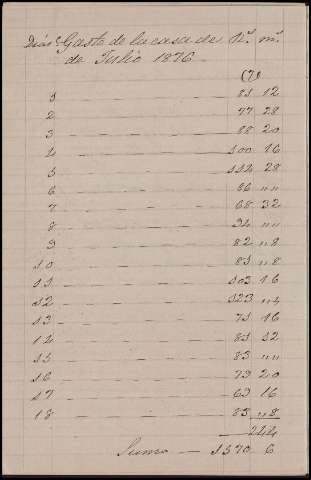 Dias. Gasto de la casa de N.ª m.ª
de Julio 1876
(7)
1 81 12
2 77 28
3 88 20
4 100 16
5 112 28
6 86 ""
7 68 32
8 94 ""
9 82 "8
10 81 "8
11 103 16
12 123 "4
13 71 16
14 81 32
15 83 ""
16 79 20
17 69 16
18 83 "8
244
Suma 1570 6